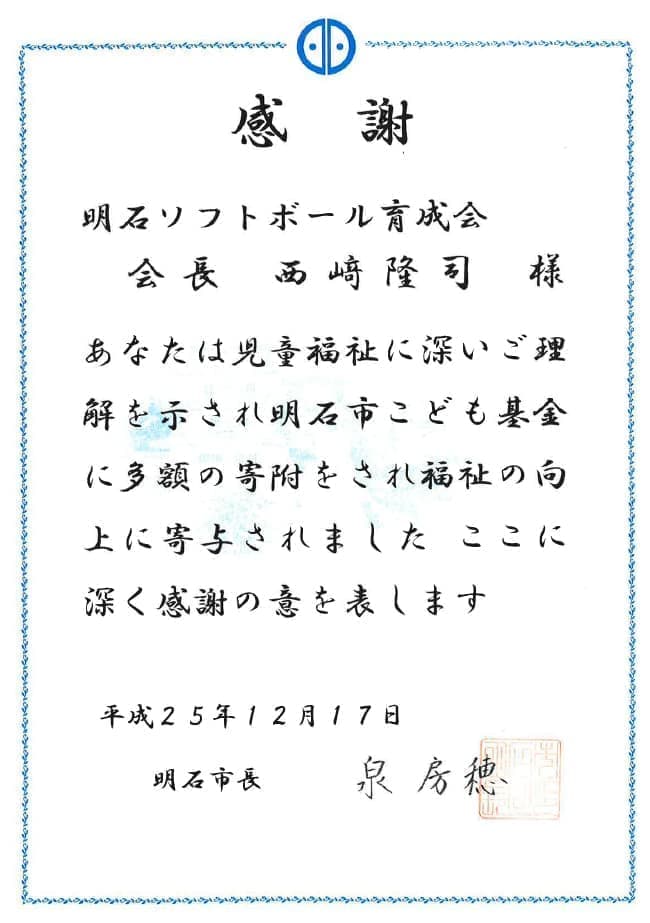 感謝
明石ソフトボール育成会
会長 西﨑隆司 様
あなたは児童福祉に深いご理
解を示され明石市こども基金
に多額の寄附をされ福祉の向
上に寄与されました ここに
深く感謝の意を表します
平成２５年１２月１７日
明石市長 泉 房穂